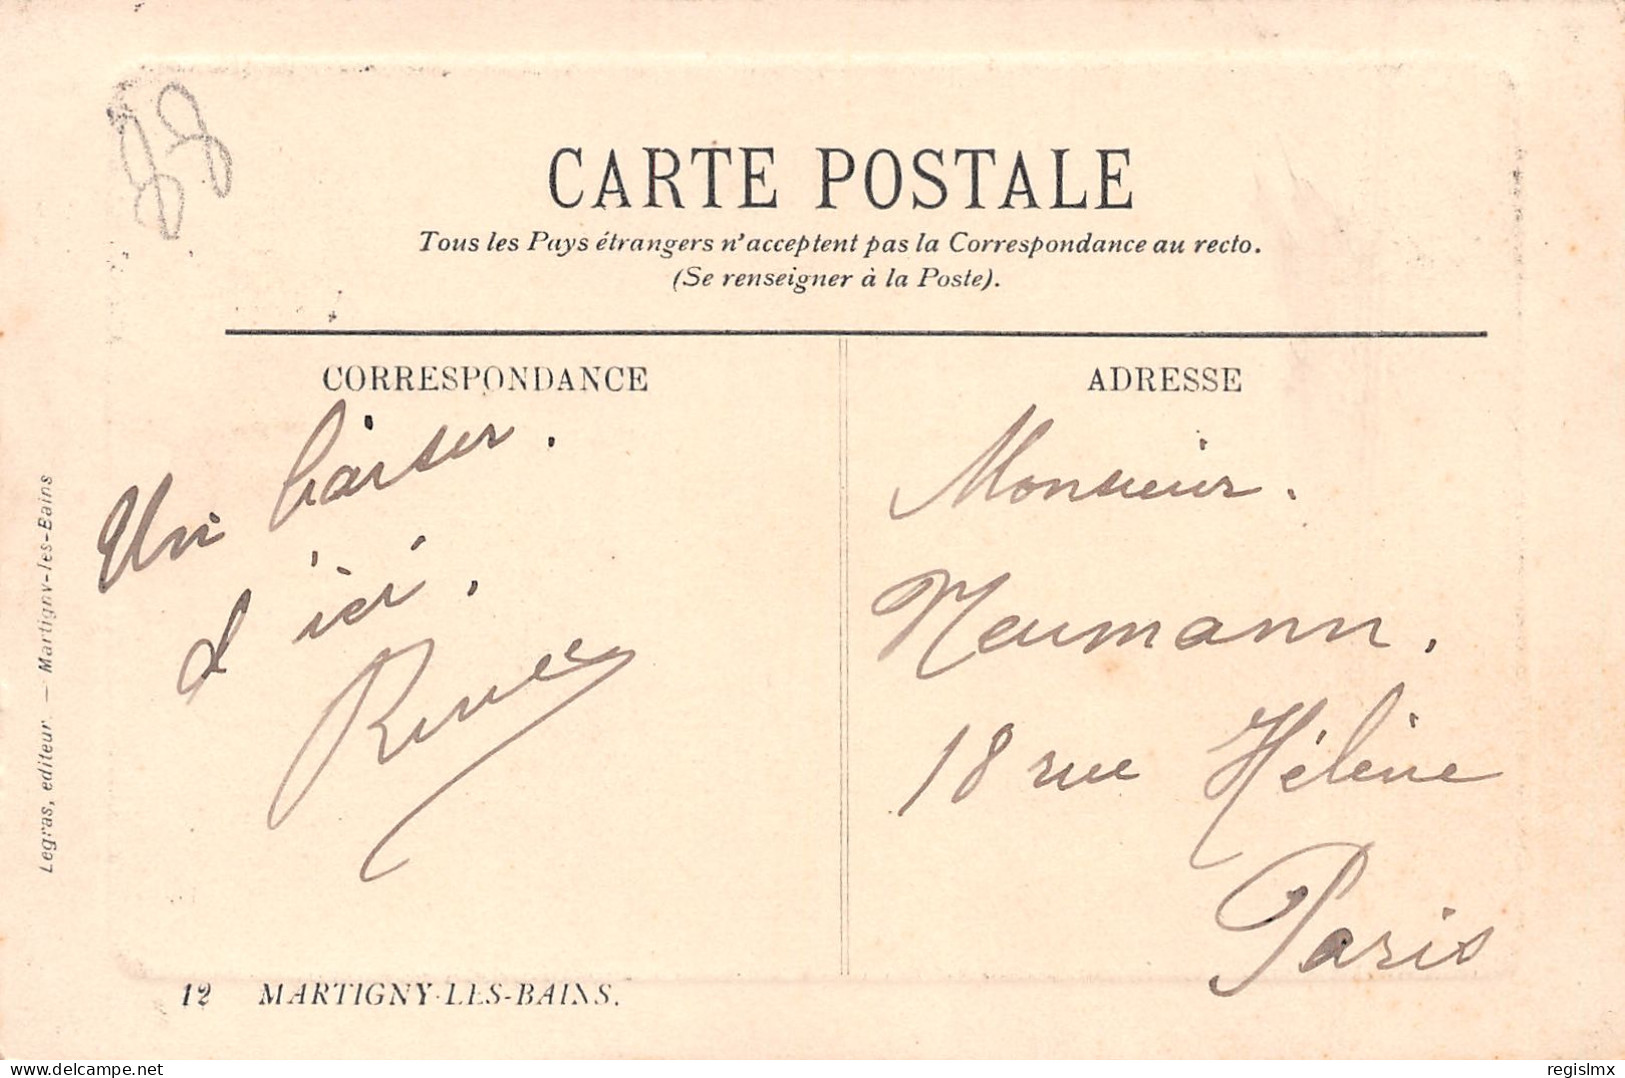 88
CARTE POSTALE
Tous les Pays étrangers n'acceptent pas la Correspondance au recto.
(Se renseigner à la Poste).
CORRESPONDANCE
Un baiser.
d'ici.
Renée
ADRESSE
Monsieur.
Neumann.
18 rue Hélène
Paris
Legras, editeur. — Martigny-les-Bains
12 MARTIGNY-LES-BAINS.
delcampe.net
regislmx